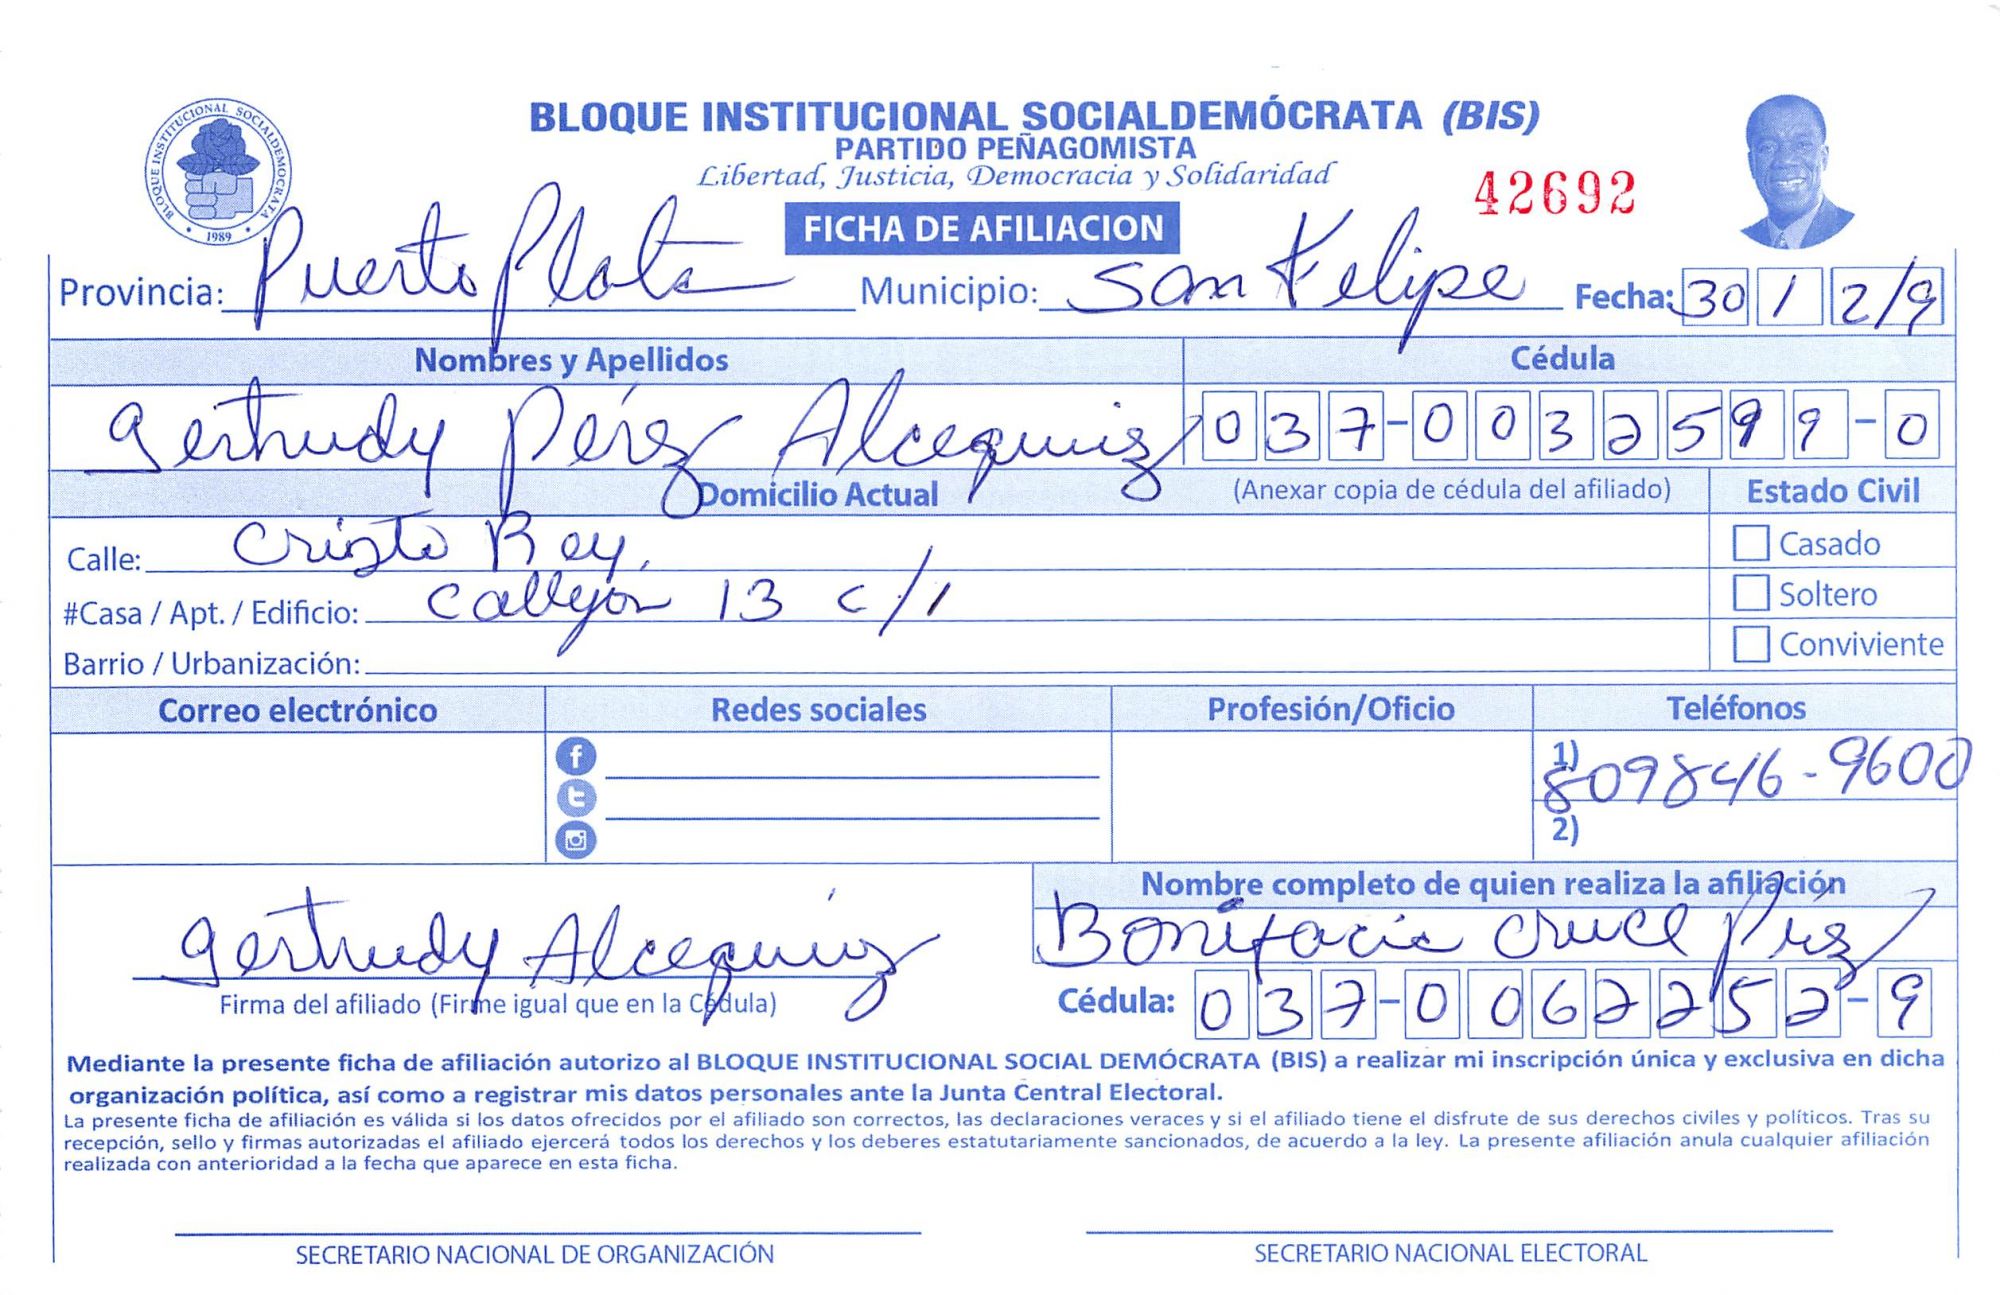 BLOQUE INSTITUCIONAL SOCIALDEMÓCRATA (BIS)
PARTIDO PEÑAGOMISTA
Libertad, Justicia, Democracia y Solidaridad
42692
BLOQUE INSTITUCIONAL SOCIALDEMOCRATA
1989
FICHA DE AFILIACION
Provincia: Puerto Plata Municipio: San Felipe Fecha: 30 / 2/9
Nombres y Apellidos Cédula
Gertrudy Pérez Alcequiez 037-0032599-0
Domicilio Actual (Anexar copia de cédula del afiliado) Estado Civil
Calle: Cristo Rey, Casado
#Casa / Apt. / Edificio: Callejon 13 c/1 Soltero
Barrio / Urbanización: Conviviente
Correo electrónico Redes sociales Profesión/Oficio Teléfonos
1) 809846-9600
2)
Nombre completo de quien realiza la afiliación
Gertrudy Alcequiez Bonifacia Cruce Pérez
Firma del afiliado (Firme igual que en la Cédula) Cédula: 037-0062252-9
Mediante la presente ficha de afiliación autorizo al BLOQUE INSTITUCIONAL SOCIAL DEMÓCRATA (BIS) a realizar mi inscripción única y exclusiva en dicha
organización política, así como a registrar mis datos personales ante la Junta Central Electoral.
La presente ficha de afiliación es válida si los datos ofrecidos por el afiliado son correctos, las declaraciones veraces y si el afiliado tiene el disfrute de sus derechos civiles y políticos. Tras su
recepción, sello y firmas autorizadas el afiliado ejercerá todos los derechos y los deberes estatutariamente sancionados, de acuerdo a la ley. La presente afiliación anula cualquier afiliación
realizada con anterioridad a la fecha que aparece en esta ficha.
SECRETARIO NACIONAL DE ORGANIZACIÓN SECRETARIO NACIONAL ELECTORAL